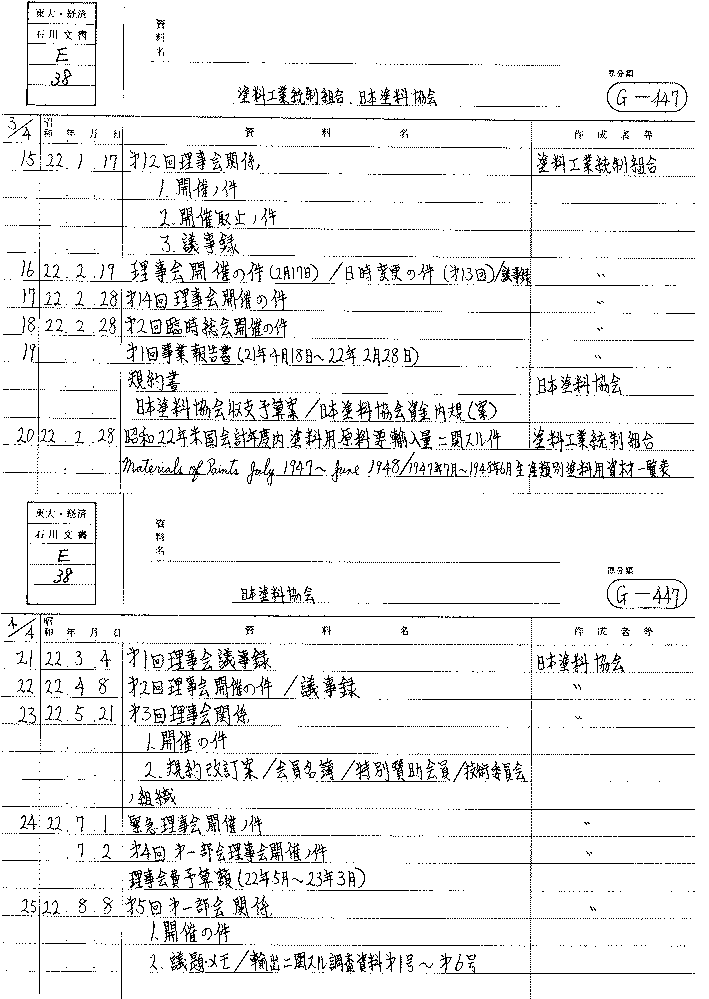 東大・経済
石川文書
E
38
資料名
塗料工業統制組合、日本塗料協会
原分類
G-447
3/4 昭和 年 月 日 資料名 作成者等
15 22 1 17 第12回理事会関係 塗料工業統制組合
1. 開催ノ件
2. 開催取止ノ件
3. 議事録
16 22 2 17 理事会開催の件(2月17日)/日時変更の件(第13回)/議事録 〃
17 22 2 28 第14回理事会開催の件 〃
18 22 2 28 第2回臨時総会開催の件 〃
19 第1回事業報告書(21年4月18日~22年2月28日) 〃
規約書 日本塗料協会
日本塗料協会収支予算案/日本塗料協会資金内規(案)
20 22 2 28 昭和22年米国会計年度内塗料用原料要輸入量ニ関スル件 塗料工業統制組合
Materials of Paints July 1947~June 1948/1947年7月~1948年6月生産類別塗料用資材一覧表
東大・経済
石川文書
E
38
資料名
日本塗料協会
原分類
G-447
4/4 昭和 年 月 日 資料名 作成者等
21 22 3 4 第1回理事会議事録 日本塗料協会
22 22 4 8 第2回理事会開催の件/議事録 〃
23 22 5 21 第3回理事会関係 〃
1. 開催の件
2. 規約改訂案/会員名簿/特別賛助会員/技術委員会
ノ組織
24 22 7 1 緊急理事会開催ノ件 〃
7 2 第4回第一部会理事会開催ノ件 〃
理事会費予算額(22年5月~23年3月)
25 22 8 8 第5回第一部会関係 〃
1. 開催の件
2. 議題メモ/輸出ニ関スル調査資料第1号~第6号